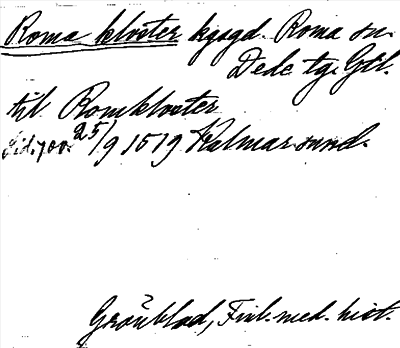 Roma kloster kgsgd. Roma sn.
Dede tg. Gtl.
til Romkloster
25/9 1519 Kalmar sund.
Grönblad, Finl. med. hist.